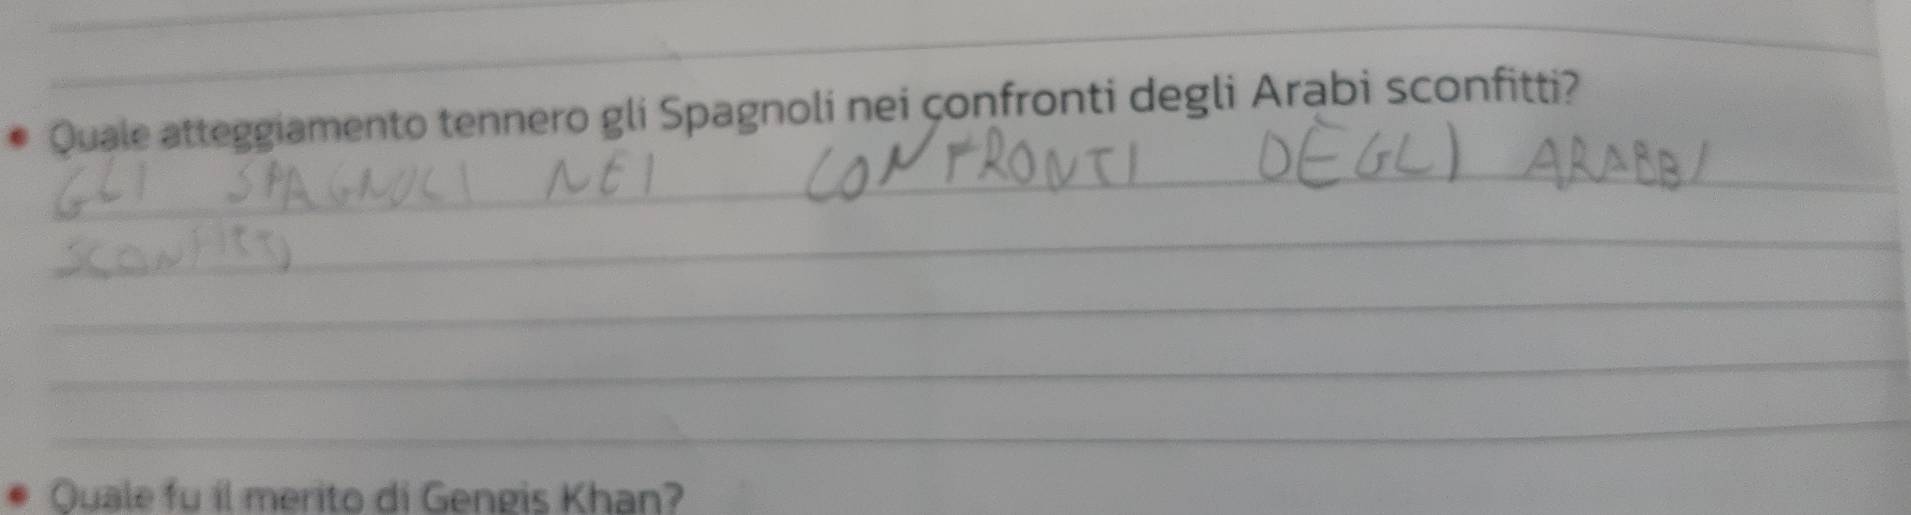 • Quale atteggiamento tennero gli Spagnoli nei confronti degli Arabi sconfitti?
GLI SPAGNOLI NEI CONFRONTI DEGLI ARABBI
SCONFITTI
• Quale fu il merito di Gengis Khan?